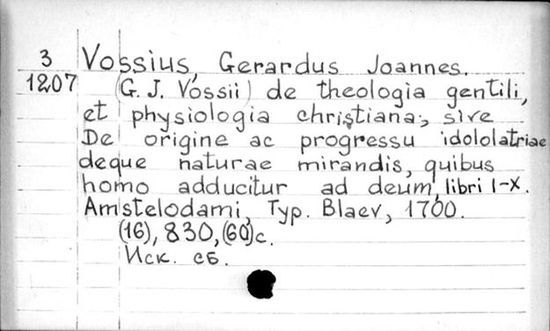 3 Vossius, Gerardus Joannes.
1207 (G. J. Vossii) de theologia gentili,
et physiologia christiana, sive
De origine ac progressu idololatriae
deque naturae mirandis, quibus
homo adducitur ad deum, libri I-X.
Amstelodami, Typ. Blaev, 1700.
(16), 830, (60)c.
Иск. сб.